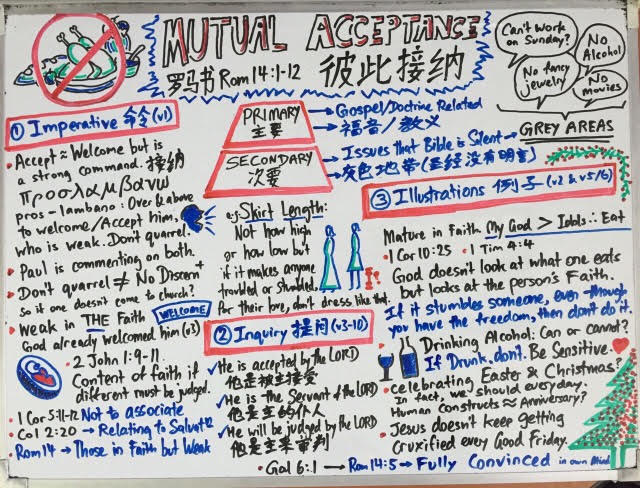 MUTUAL ACCEPTANCE
罗马书 Rom 14:1-12 彼此接纳
Can't Work on Sunday?
No Alcohol
No fancy jewelry
No movies
GREY AREAS
PRIMARY
主要
→ Gospel/Doctrine Related
→ 福音/教义
SECONDARY
次要
→ Issues that Bible is Silent
→ 灰色地带(圣经没有明言)
① Imperative 命令 (v1)
• Accept ≈ Welcome but is
a strong command. 接纳
προσλαμβανω
pros-lambano: Over & above
to welcome/Accept him,
who is weak. Don't quarrel
• Paul is commenting on both.
• Don't quarrel ≠ No Discern
So if one doesn't come to church?
• Weak in THE Faith
WELCOME
God already welcomed him (v3)
• 2 John 1:9-11.
Content of faith if
different must be judged.
• 1 Cor 5:11-12 Not to associate
• Col 2:20 → Relating to Salvat
• Rom 14 → Those in Faith but Weak
e.g. Skirt Length:
Not how high
or how low but
if it makes anyone
troubled or stumbled.
For their love, don't dress like that.
② Inquiry 提问 (v3-10)
✓ He is accepted by the LORD
他是被主接受
✓ He is the Servant of the LORD
他是主的仆人
✓ He will be judged by the LORD
他是主来审判
• Gal 6:1 → Rom 14:5 → Fully Convinced in own Mind
③ Illustrations 例子 (v2 & v5/6)
Mature in Faith My God > Idols ∴ Eat
• 1 Cor 10:25 • 1 Tim 4:4
God doesn't look at what one eats
but looks at the person's Faith.
If it stumbles someone, even though
you have the freedom, then don't do it.
Drinking Alcohol: Can or cannot?
If Drunk, don't. Be Sensitive.
• Celebrating Easter & Christmas?
In fact, we should everyday.
Human constructs ≈ Anniversary?
Jesus doesn't keep getting
Cruxified every Good Friday.